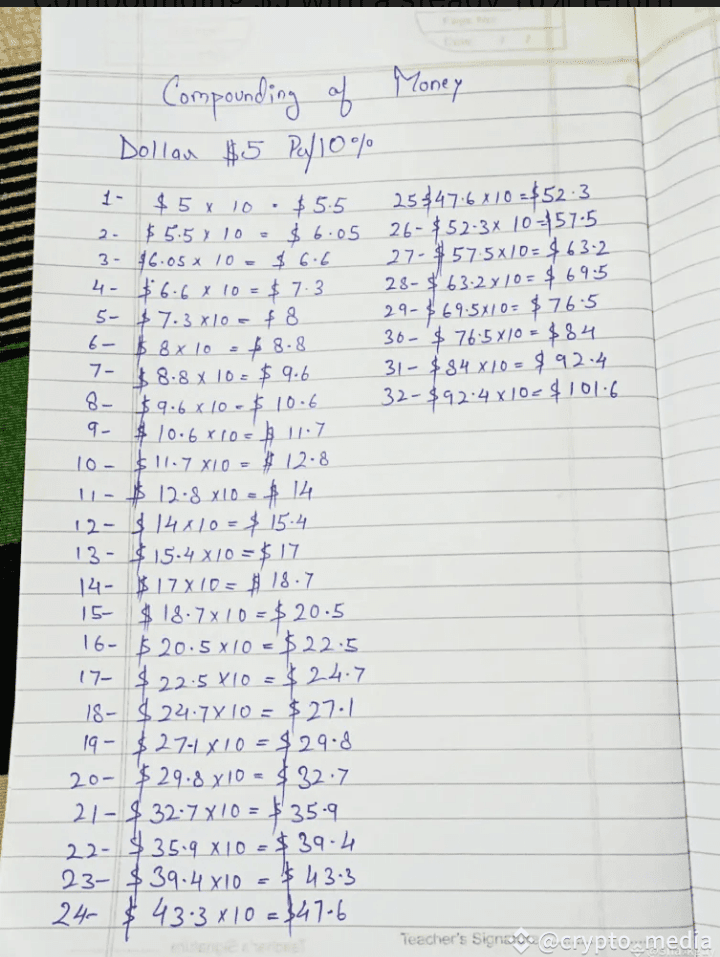 Compounding of Money
Dollar $5 Per/10%
1- $5 x 10 = $5.5
2- $5.5 x 10 = $6.05
3- $6.05 x 10 = $6.6
4- $6.6 x 10 = $7.3
5- $7.3 x10 = $8
6- $8 x 10 = $8.8
7- $8.8 x 10 = $9.6
8- $9.6 x 10 = $10.6
9- $10.6 x 10 = $11.7
10- $11.7 x10 = $12.8
11- $12.8 x10 = $14
12- $14 x 10 = $15.4
13- $15.4 x10 = $17
14- $17 x 10 = $18.7
15- $18.7 x 10 = $20.5
16- $20.5 x10 = $22.5
17- $22.5 x10 = $24.7
18- $24.7 x 10 = $27.1
19- $27.1 x 10 = $29.8
20- $29.8 x10 = $32.7
21- $32.7 x10 = $35.9
22- $35.9 x10 = $39.4
23- $39.4 x10 = $43.3
24- $43.3 x 10 = $47.6
25 $47.6 x 10 = $52.3
26- $52.3 x 10 = $57.5
27- $57.5 x 10 = $63.2
28- $63.2 x 10 = $69.5
29- $69.5 x10 = $76.5
30- $76.5 x 10 = $84
31- $84 x 10 = $92.4
32- $92.4 x 10 = $101.6
Teacher's
@crypto_media